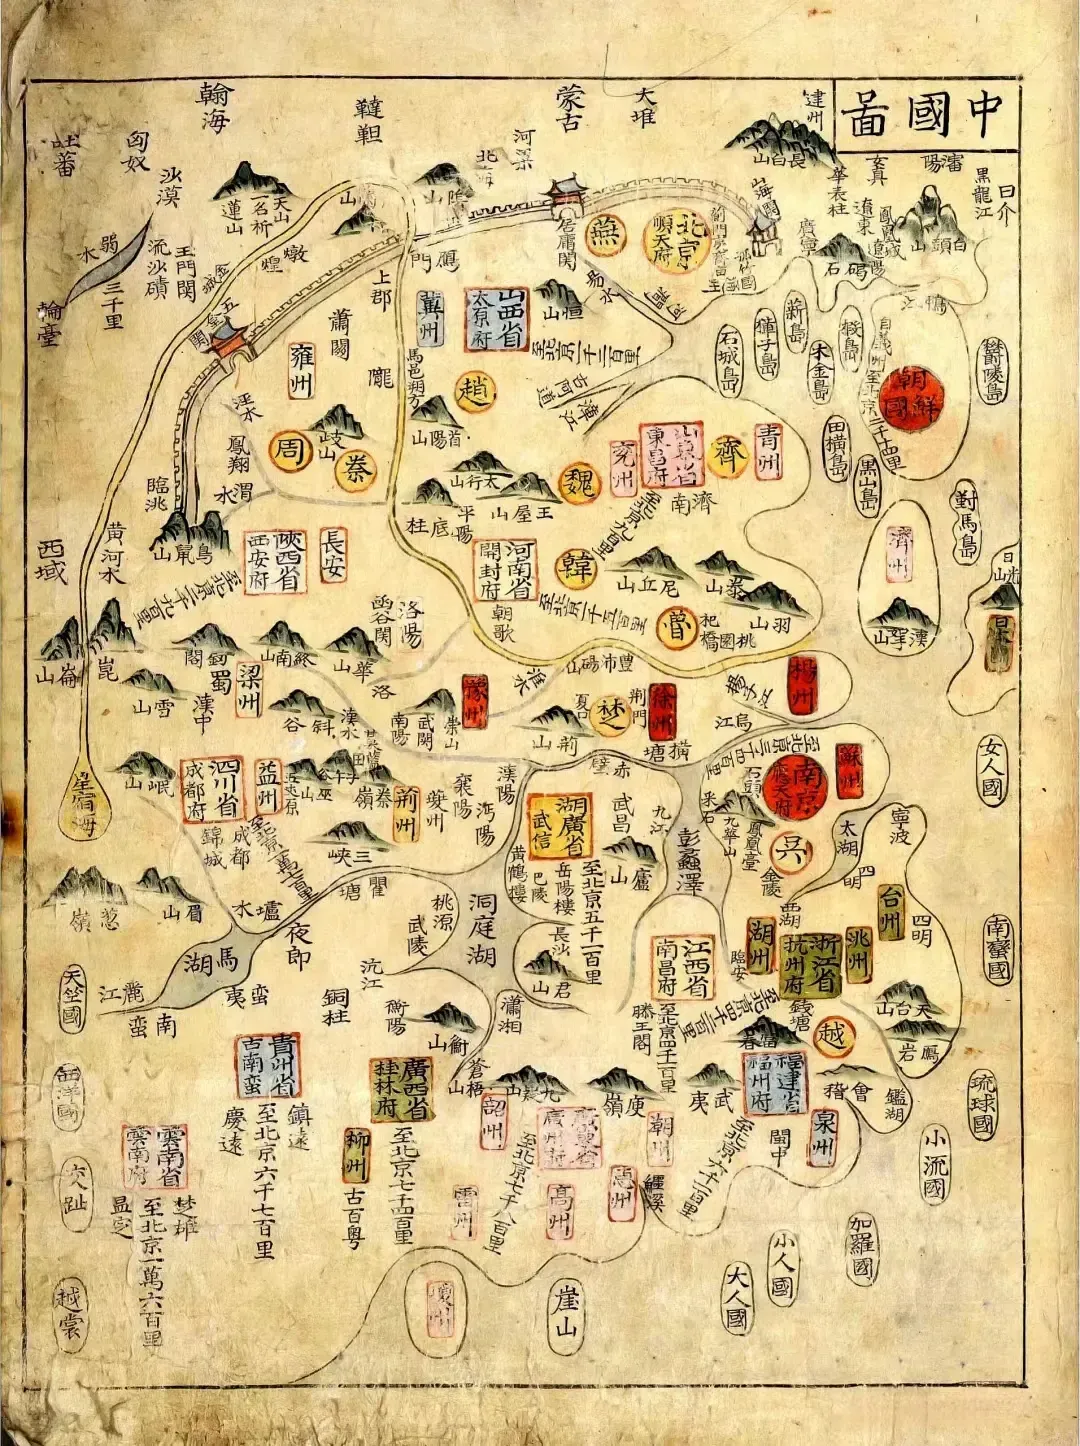 中國啚
建州
大堆
蒙古
韃靼
翰海
匈奴
吐蕃
沙漠
長白山
河梁
北海
女真
瀋陽
黑龍江
日介
華表柱
遼東
鳳凰城
遼陽
廣寧
白頭山
碣石
山海關
北京
順天府
燕
居庸關
天山
一名析
蓮山
燉煌
玉門關
流沙磧
弱水
三千里
輪臺
金城
五金關
上郡
鴈門
蕭關
隴
雍州
冀州
山西省
太原府
至北京一千二百里
恒山
易水
石城島
獐子島
薪島
木金島
田橫島
黑山島
欝陵島
朝鮮國
自義州至北京二千十四里
對馬島
日光山
日本
濟州
漢拏山
馬邑朔方
趙
首陽山
古河道
漳水
太行山
王屋山
魏
兗州
山東省
東昌府
齊
青州
濟南
至北京九百里
涇水
鳳翔
渭水
臨洮
岐山
周
秦
鳥鼠山
陝西省
西安府
長安
平陽
底柱
河南省
開封府
至北京一千五百里
朝歌
韓
尼丘山
泰山
羽山
魯
杞橋
桃園
豐沛碭山
西域
黃河水
崑崙山
釰閣
蜀
終南山
華山
函谷關
洛陽
洛
雪山
漢中
梁州
斜谷
漢水
南陽
武關
崇山
豫州
淮水
荊山
夏口
楚
荊門
徐州
橫塘
楊子江
烏江
楊州
星宿海
岷山
四川省
成都府
錦城
成都
益州
秦嶺
荊州
夔州
襄陽
沔陽
漢陽
赤壁
三峽
瞿塘
至北京一萬七百里
湖廣省
武信
武昌
九江
廬山
彭蠡澤
南京
應天府
至北京三千四百里
石頭
采石
九華山
鳳凰臺
金陵
吳
蘇州
太湖
寧波
四明
女人國
葱嶺
眉山
瀘水
夜郎
馬湖
桃源
武陵
洞庭湖
黃鶴樓
巴陵
岳陽樓
長沙
至北京五千一百里
君山
沅江
瀟湘
江西省
南昌府
滕王閣
至北京四千二百里
臨安
湖州
西湖
浙江省
杭州府
至北京四千二百里
洮州
台州
四明
錢塘
富春
越
天台山
鴈岩
會稽
鑑湖
南蠻國
天竺國
麗江
南蠻
蠻夷
銅柱
衡陽
衡山
蒼梧山
西洋國
貴州省
古南蠻
鎮遠
至北京六千七百里
慶遠
廣西省
桂林府
至北京七千四百里
柳州
古百粤
九疑山
韶州
庾嶺
武夷
廣東省
廣州府
至北京七千八百里
潮州
福建省
福州府
至北京六千一百里
閩中
泉州
琉球國
小流國
交趾
雲南省
雲南府
楚雄
至北京一萬六百里
孟定
雷州
高州
惠州
鱷溪
越裳
瓊州
崖山
大人國
小人國
加羅國